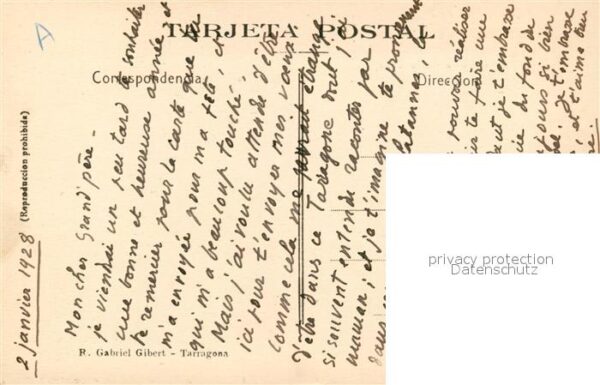 TARJETA POSTAL
Correspondencia
Dirección
(Reproduccion prohibida)
2 janvier 1928
Mon cher Grand'père -
je viendrai un peu tard te souhaiter
une bonne et heureuse année et
te remercier pour la carte que tu
m'a envoyée pour ma fête, et
qui m'a beaucoup touché.
Mais j'ai voulu attendre d'être
ici pour t'envoyer mes vœux
Comme cela me paraît étrange
d'être dans ce Tarragone dont j'ai
si souvent entendu raconter par
maman; et je t'imagine te promenant
dans
pouvoir réaliser
te faire une
je t'embrasse
du fond de
toujours si bien
Je t'embrasse
et t'aime
R. Gabriel Gibert - Tarragona
privacy protection
Datenschutz